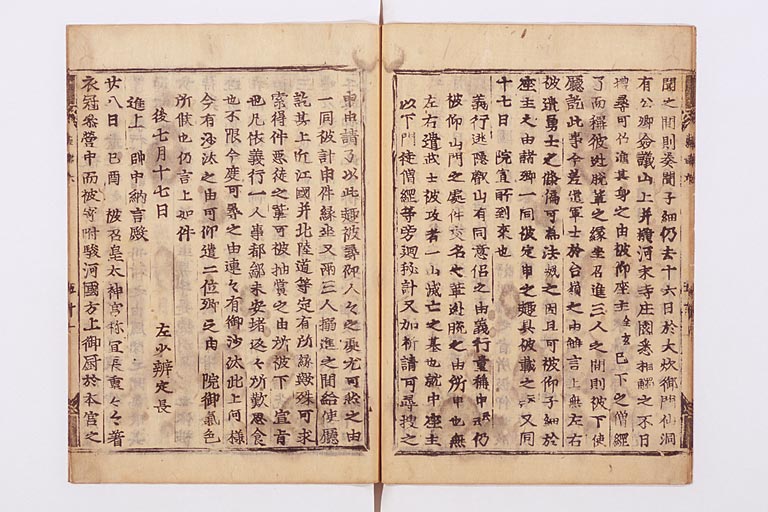 聞之間則奏聞子細仍去十六日於大炊御門仙洞
有公卿僉議山上并横河末寺庄園悉相觸之不日
捜尋可仍進其身之由被仰座主全玄已下之僧經
了而稱彼姓脱輩之縁坐召進三人之間則被下使
廳訖此事今差遣軍士於台嶺之由雖言上無左右
被遣勇士之條偏可為法滅之因且可被仰子細於
座主之由諸卿一同被定申之趣具被載之云又同
十七日 院宣所到来也
義行逃隱叡山有同意侶之由義行童稱申云仍
被仰山門之處件交名之輩逃脱之由所申也無
左右遣武士被攻者一山滅亡之基也就中座主
以下門徒僧經等旁廻秘計又加祈請可尋捜之
之重申請了以此趣被尋仰人々之處尤可然之由
一同被計申件縁坐又兩三人搦進之間給使廳
訖其上近江國并北陸道等定有所縁歟殊可求
索得件悪徒之輩可被抽賞之由所被下 宣旨
也凡依義行一人事都鄙未安堵返々所歎思食
也不限今度可尋之由連々有御沙汰此上何様
今有沙汰之由可仰遣二位卿之由 院御氣色
所候也仍言上如件
後七月十七日 左少辨定長
進上 帥中納言殿
廿八日 己酉 被召皇太神宮祢宜長重々々着
衣冠參營中而被寄附駿河國方上御厨於本宮之